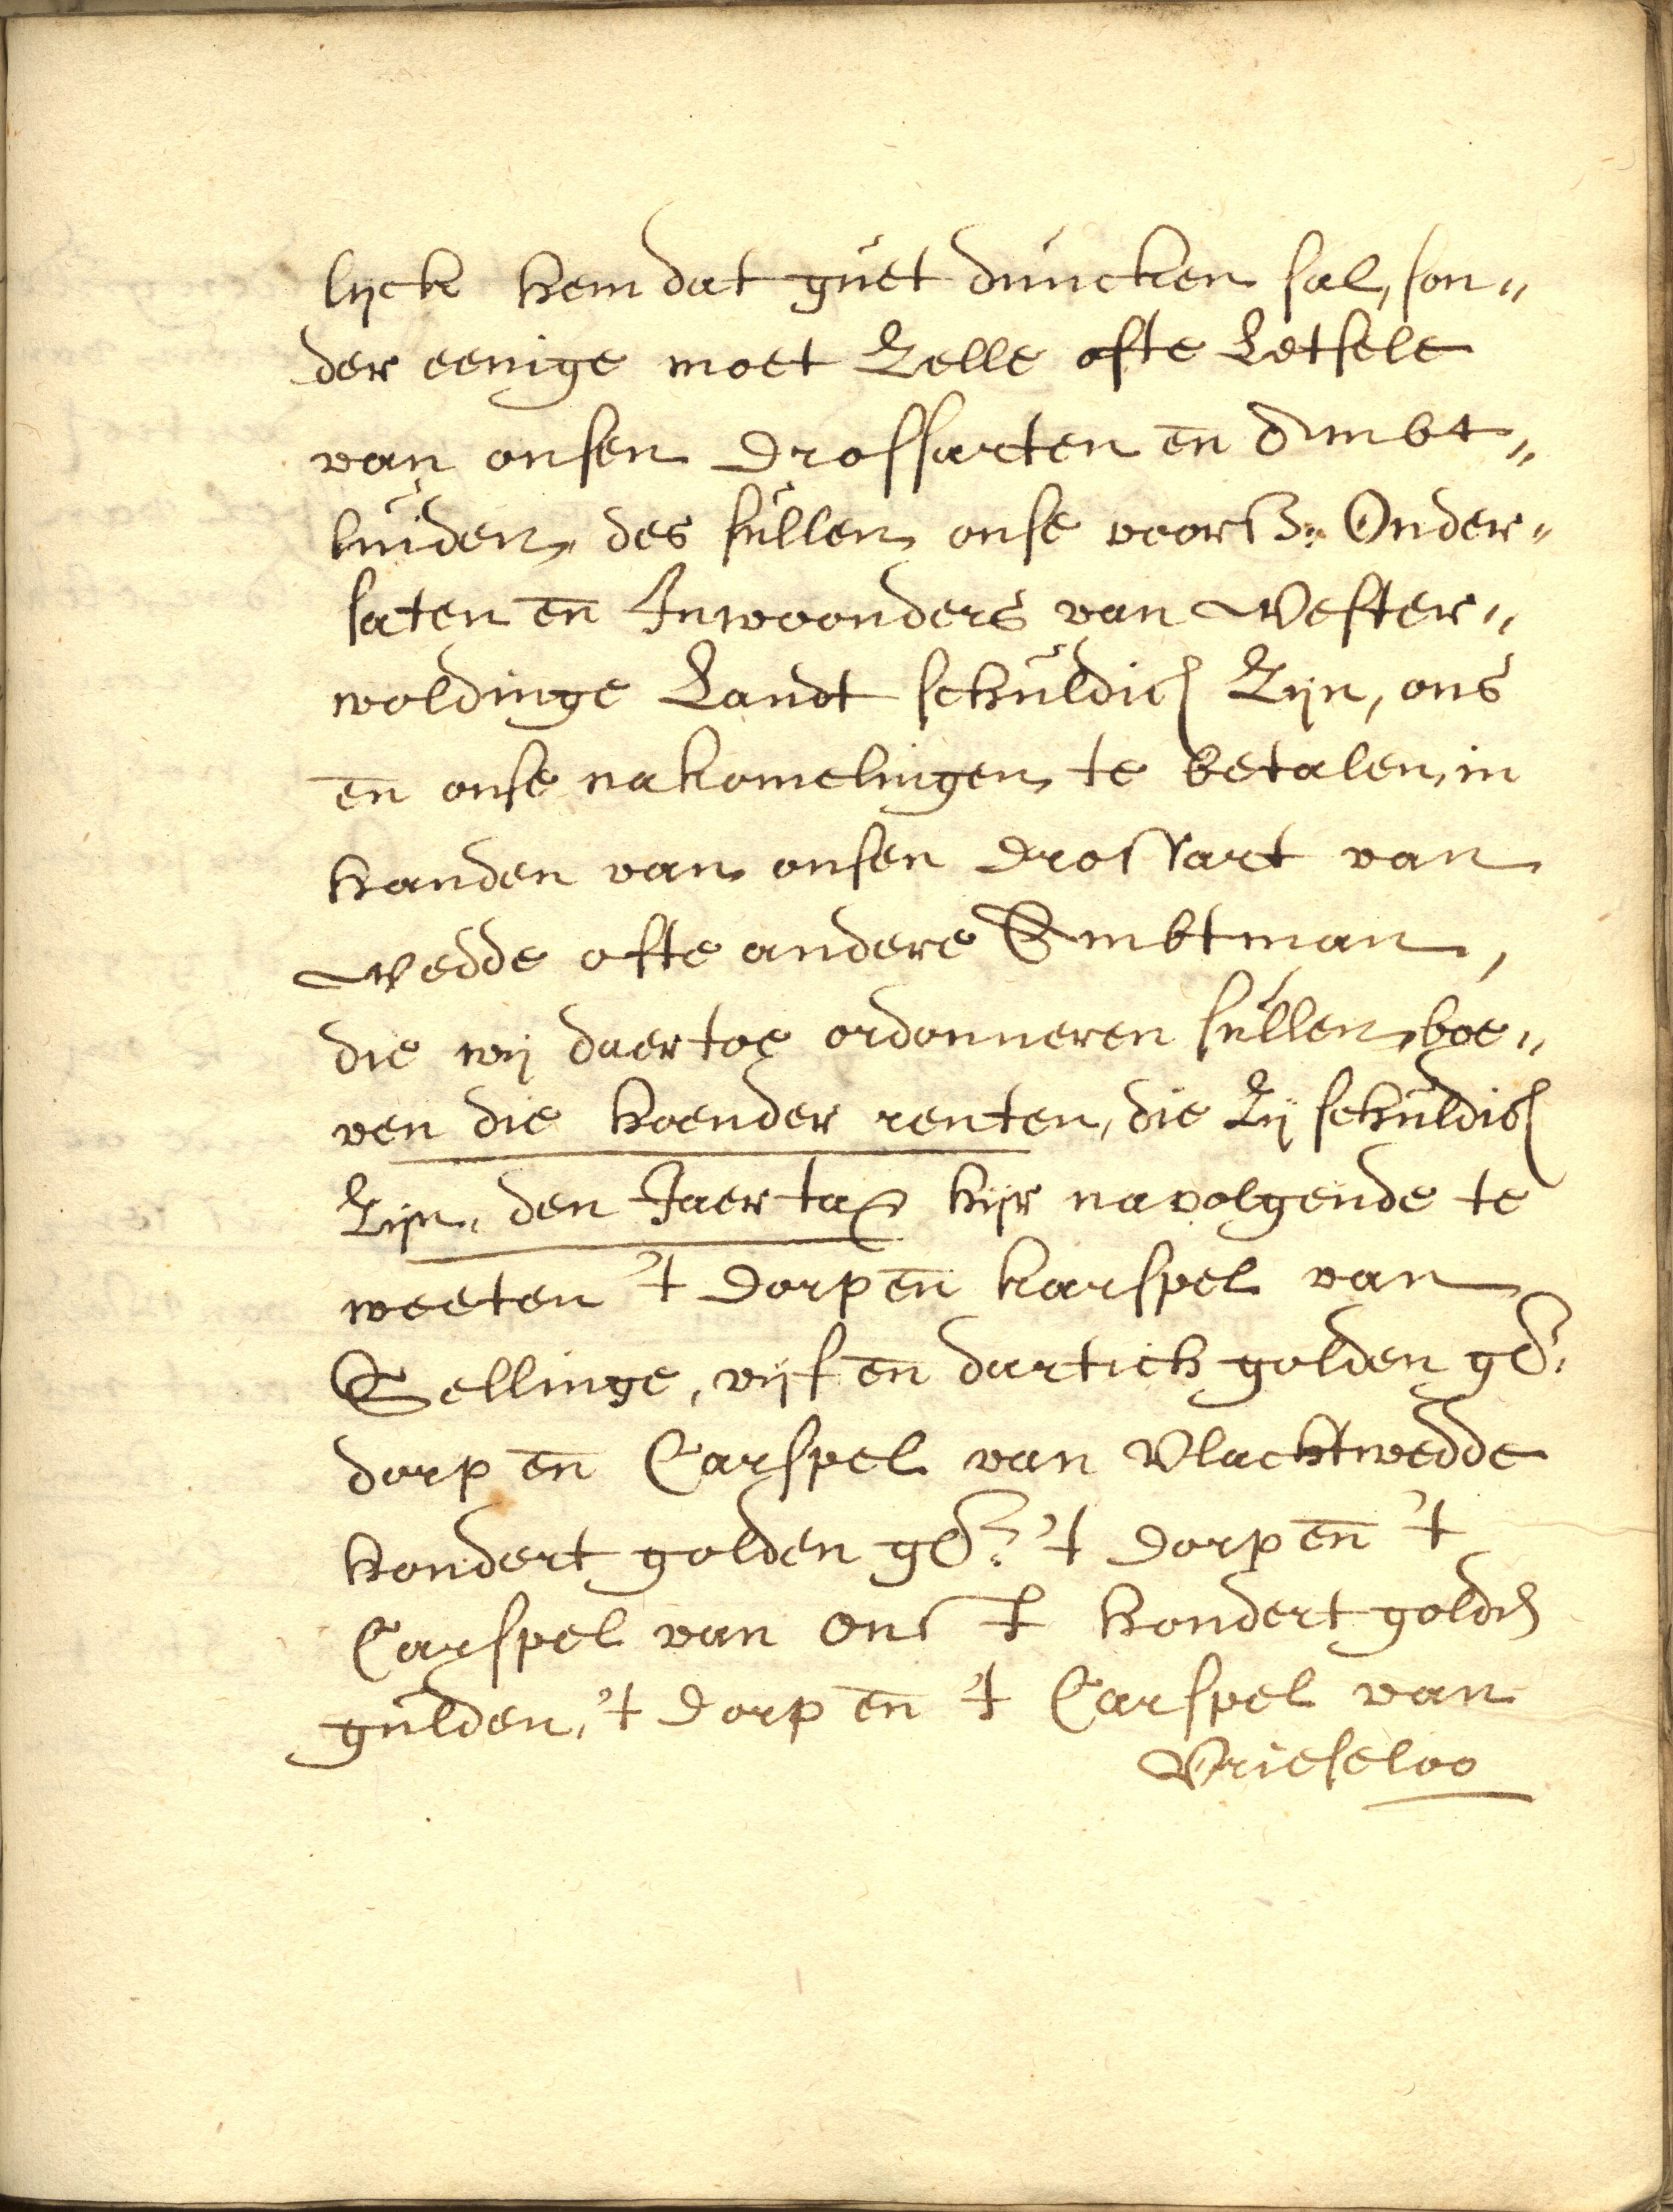 lijck hem dat guet duncken sal, son„
der eenige moet Zelle ofte Letsele
van onsen Drossarten en̄ Ambt„
luiden, des sullen onse voorß: Onder„
saten en̄ Inwoonders van Wester„
woldinge Landt schuldich Zijn, ons
en̄ onse nakomelingen te betalen, in
handen van onsen Drossart van
Wedde ofte andere Ambtman,
die wij daertoe ordonneren sullen, boe„
ven die hoender renten, die Zij schuldich
Zijn, den Jaertax hijr navolgende te
weeten 't Dorp en̄ karspel van
Sellinge, vijf en̄ dartich golden gl:
dorp en̄ Carspel van Vlachtwedde
hondert golden gl: 't Dorp en̄ 't
Carspel van Onst hondert gold
gulden, 't Dorp en̄ 't Carspel van
Vrieseloo